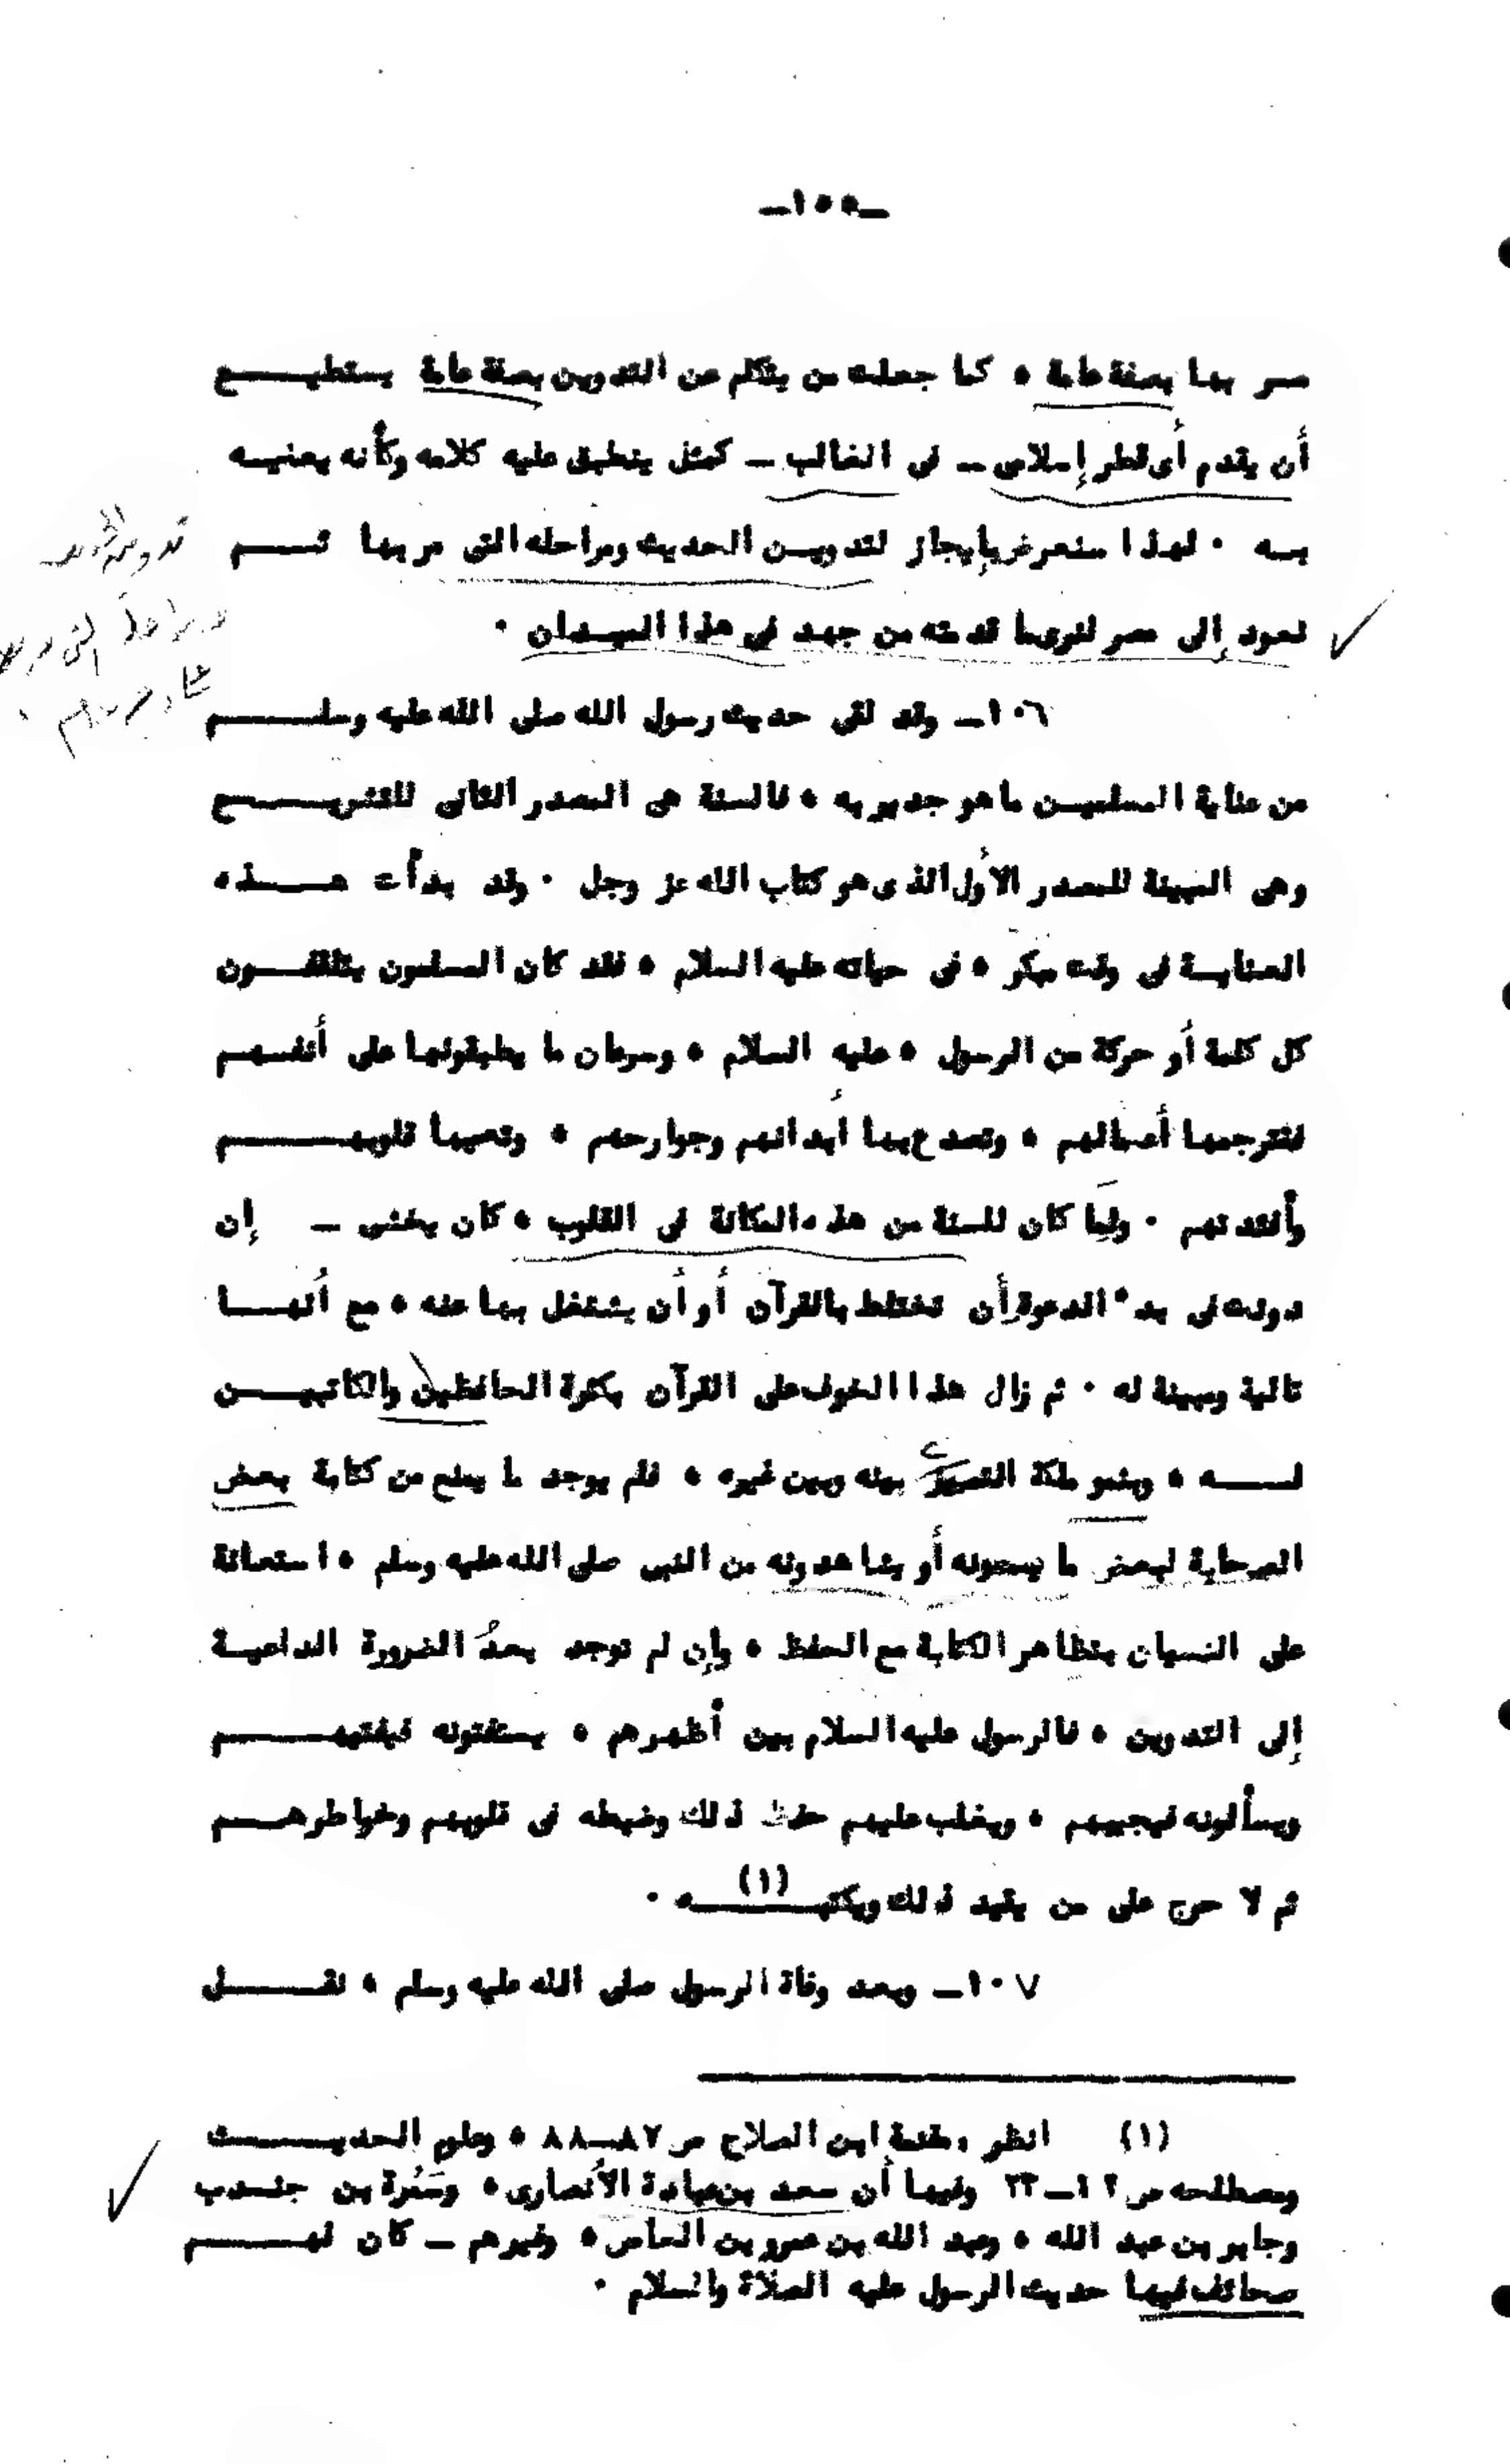 ـ١٥٥ـ
مصر بها بصفة عامة ، كما جعلت من يتكلم عن التدوين بصفة عامة يستطيع
أن يقدم أى قطر إسلامى ــ فى الغالب ــ كمثل ينطبق عليه كلامه وكأنه يعنيه
به ٠ لهذا سنعرض بإيجاز لتدوين الحديث ومراحله التى مر بها ثم
نعود إلى مصر لنرى ما قدمته من جهد فى هذا الميدان ٠
١٠٦ــ وقد لقى حديث رسول الله صلى الله عليه وسلم
من عناية المسلمين ما هو جدير به ، فالسنة هى المصدر الثانى للتشريع
وهى المبينة للمصدر الأول الذى هو كتاب الله عز وجل ٠ وقد بدأت هذه
العناية فى وقت مبكر ، فى حياته عليه السلام ، فقد كان المسلمون يتلقفون
كل كلمة أو حركة من الرسول ، عليه السلام ، وسرعان ما يطبقونها على أنفسهم
فتترجمها أعمالهم ، وتصدع بها أبدانهم وجوارحهم ، وتعيها قلوبهم
وأفئدتهم ٠ ولِمَا كان للسنة من هذه المكانة فى القلوب ، كان يخشى ــ إن
دونت فى بدء الدعوة أن تختلط بالقرآن أو أن يشتغل بها عنه ، مع أنها
تالية ومبينة له ٠ ثم زال هذا الخوف على القرآن بكثرة الحافظين والكاتبين
له ، وبنمو ملكة التمييز بينه وبين غيره ، فلم يوجد ما يمنع من كتابة بعض
الصحابة لبعض ما يسمعونه أو يشاهدونه من النبى صلى الله عليه وسلم ، استعانة
على النسيان بتظاهر الكتابة مع الحفظ ، وإن لم توجد بعدُ الضرورة الداعية
إلى التدوين ، فالرسول عليه السلام بين أظهرهم ، يستفتونه فيفتيهم
ويسألونه فيجيبهم ، ويغلب عليهم حفظ ذلك وضبطه فى قلوبهم وخواطرهم
ثم لا حرج على من يقيد ذلك ويكتبه (١) ٠
١٠٧ــ وبعد وفاة الرسول صلى الله عليه وسلم ، نقل
(١) انظر مقدمة ابن الصلاح ص ٨٧ــ٨٨ ، وعلوم الحديث
ومصطلحه ص ١٢ــ٢٣ وفيها أن سعد بن عبادة الأنصارى ، وسَمُرة بن جندب
وجابر بن عبد الله ، وعبد الله بن عمرو بن العاص ، وغيرهم ــ كان لهم
صحائف فيها حديث الرسول عليه الصلاة والسلام ٠